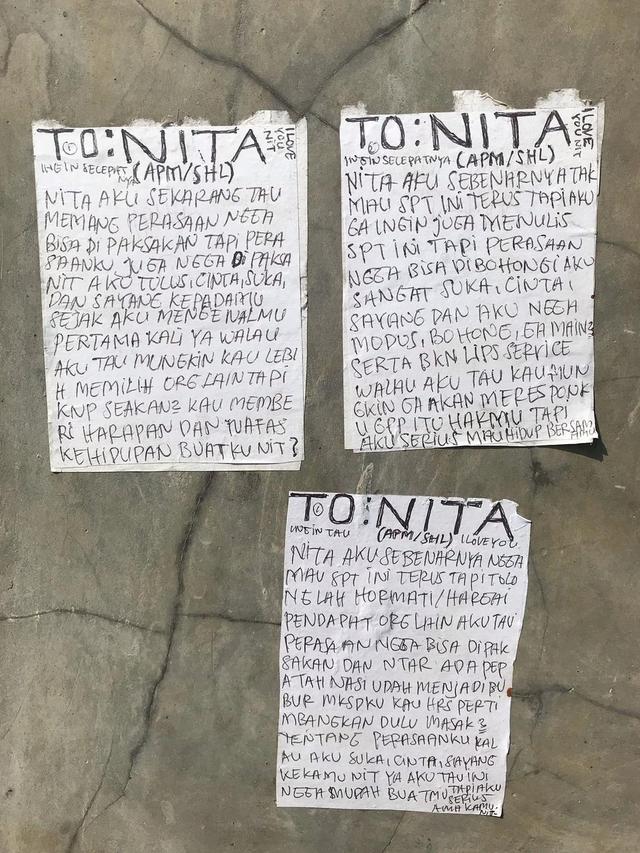 TO: NITA
I LOVE YOU NIT
INGIN SELEPAT
NYA (APM/SHL)
NITA AKU SEKARANG TAU
MEMANG PERASAAN NGGA
BISA DI PAKSAKAN TAPI PERA
SAANKU JUGA NGGA DI PAKSA
NIT AKU TULUS, CINTA, SUKA,
DAN SAYANG KEPADAMU
SEJAK AKU MENGENALMU
PERTAMA KALI YA WALAU
AKU TAU MUNGKIN KAU LEBI
H MEMILIH ORG LAIN TAPI
KNP SEAKAN2 KAU MEMBE
RI HARAPAN DAN NAFAS
KEHIPUPAN BUATKU NIT?
TO: NITA
I LOVE YOU NIT
INGIN SELEPATNYA (APM/SHL)
NITA AKU SEBENARNYA TAK
MAU SPT INI TERUS TAPI AKU
GA INGIN JUGA MENULIS
SPT INI TAPI PERASAAN
NGGA BISA DIBOHONGI AKU
SANGAT SUKA, CINTA,
SAYANG DAN AKU NGGA
MODUS, BOHONG, GA MAIN2
SERTA BKN LIPS SERVICE
WALAU AKU TAU KAU MUN
GKIN GA AKAN MERESPONK
U GPP ITU HAKMU TAPI
AKU SERIUS MAU HIDUP BERSAMAMU
TO: NITA
INGIN TAU (APM/SHL) I LOVE YOU
NITA AKU SEBENARNYA NGGA
MAU SPT INI TERUS TAPI TOLO
NG LAH HORMATI/HARGAI
PENDAPAT ORG LAIN AKU TAU
PERASAAN NGGA BISA DIPAK
SAKAN DAN NTAR ADA PEP
ATAH NASI UDAH MENJADI BU
BUR MKSDKU KAU HRS PERTI
MBANGKAN DULU MASAK2
TENTANG PERASAANKU KAL
AU AKU SUKA, CINTA, SAYANG
KEKAMU NIT YA AKU TAU INI
NGGA MUDAH BUATMU TAPI AKU
SERIUS
AMA KAMU
NIT